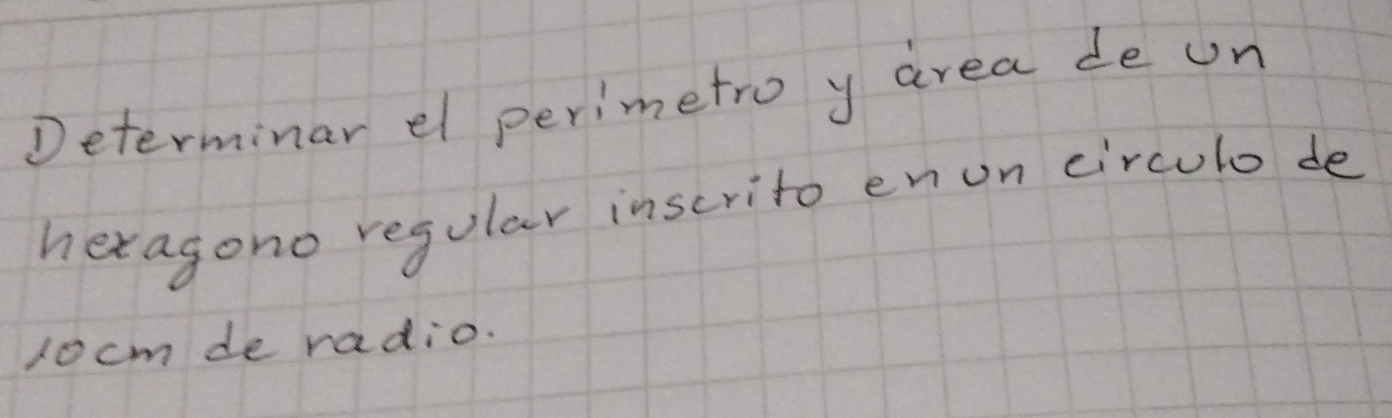 Determinar el perimetro y área de un
hexagono regular inscrito en un circulo de
10cm de radio.